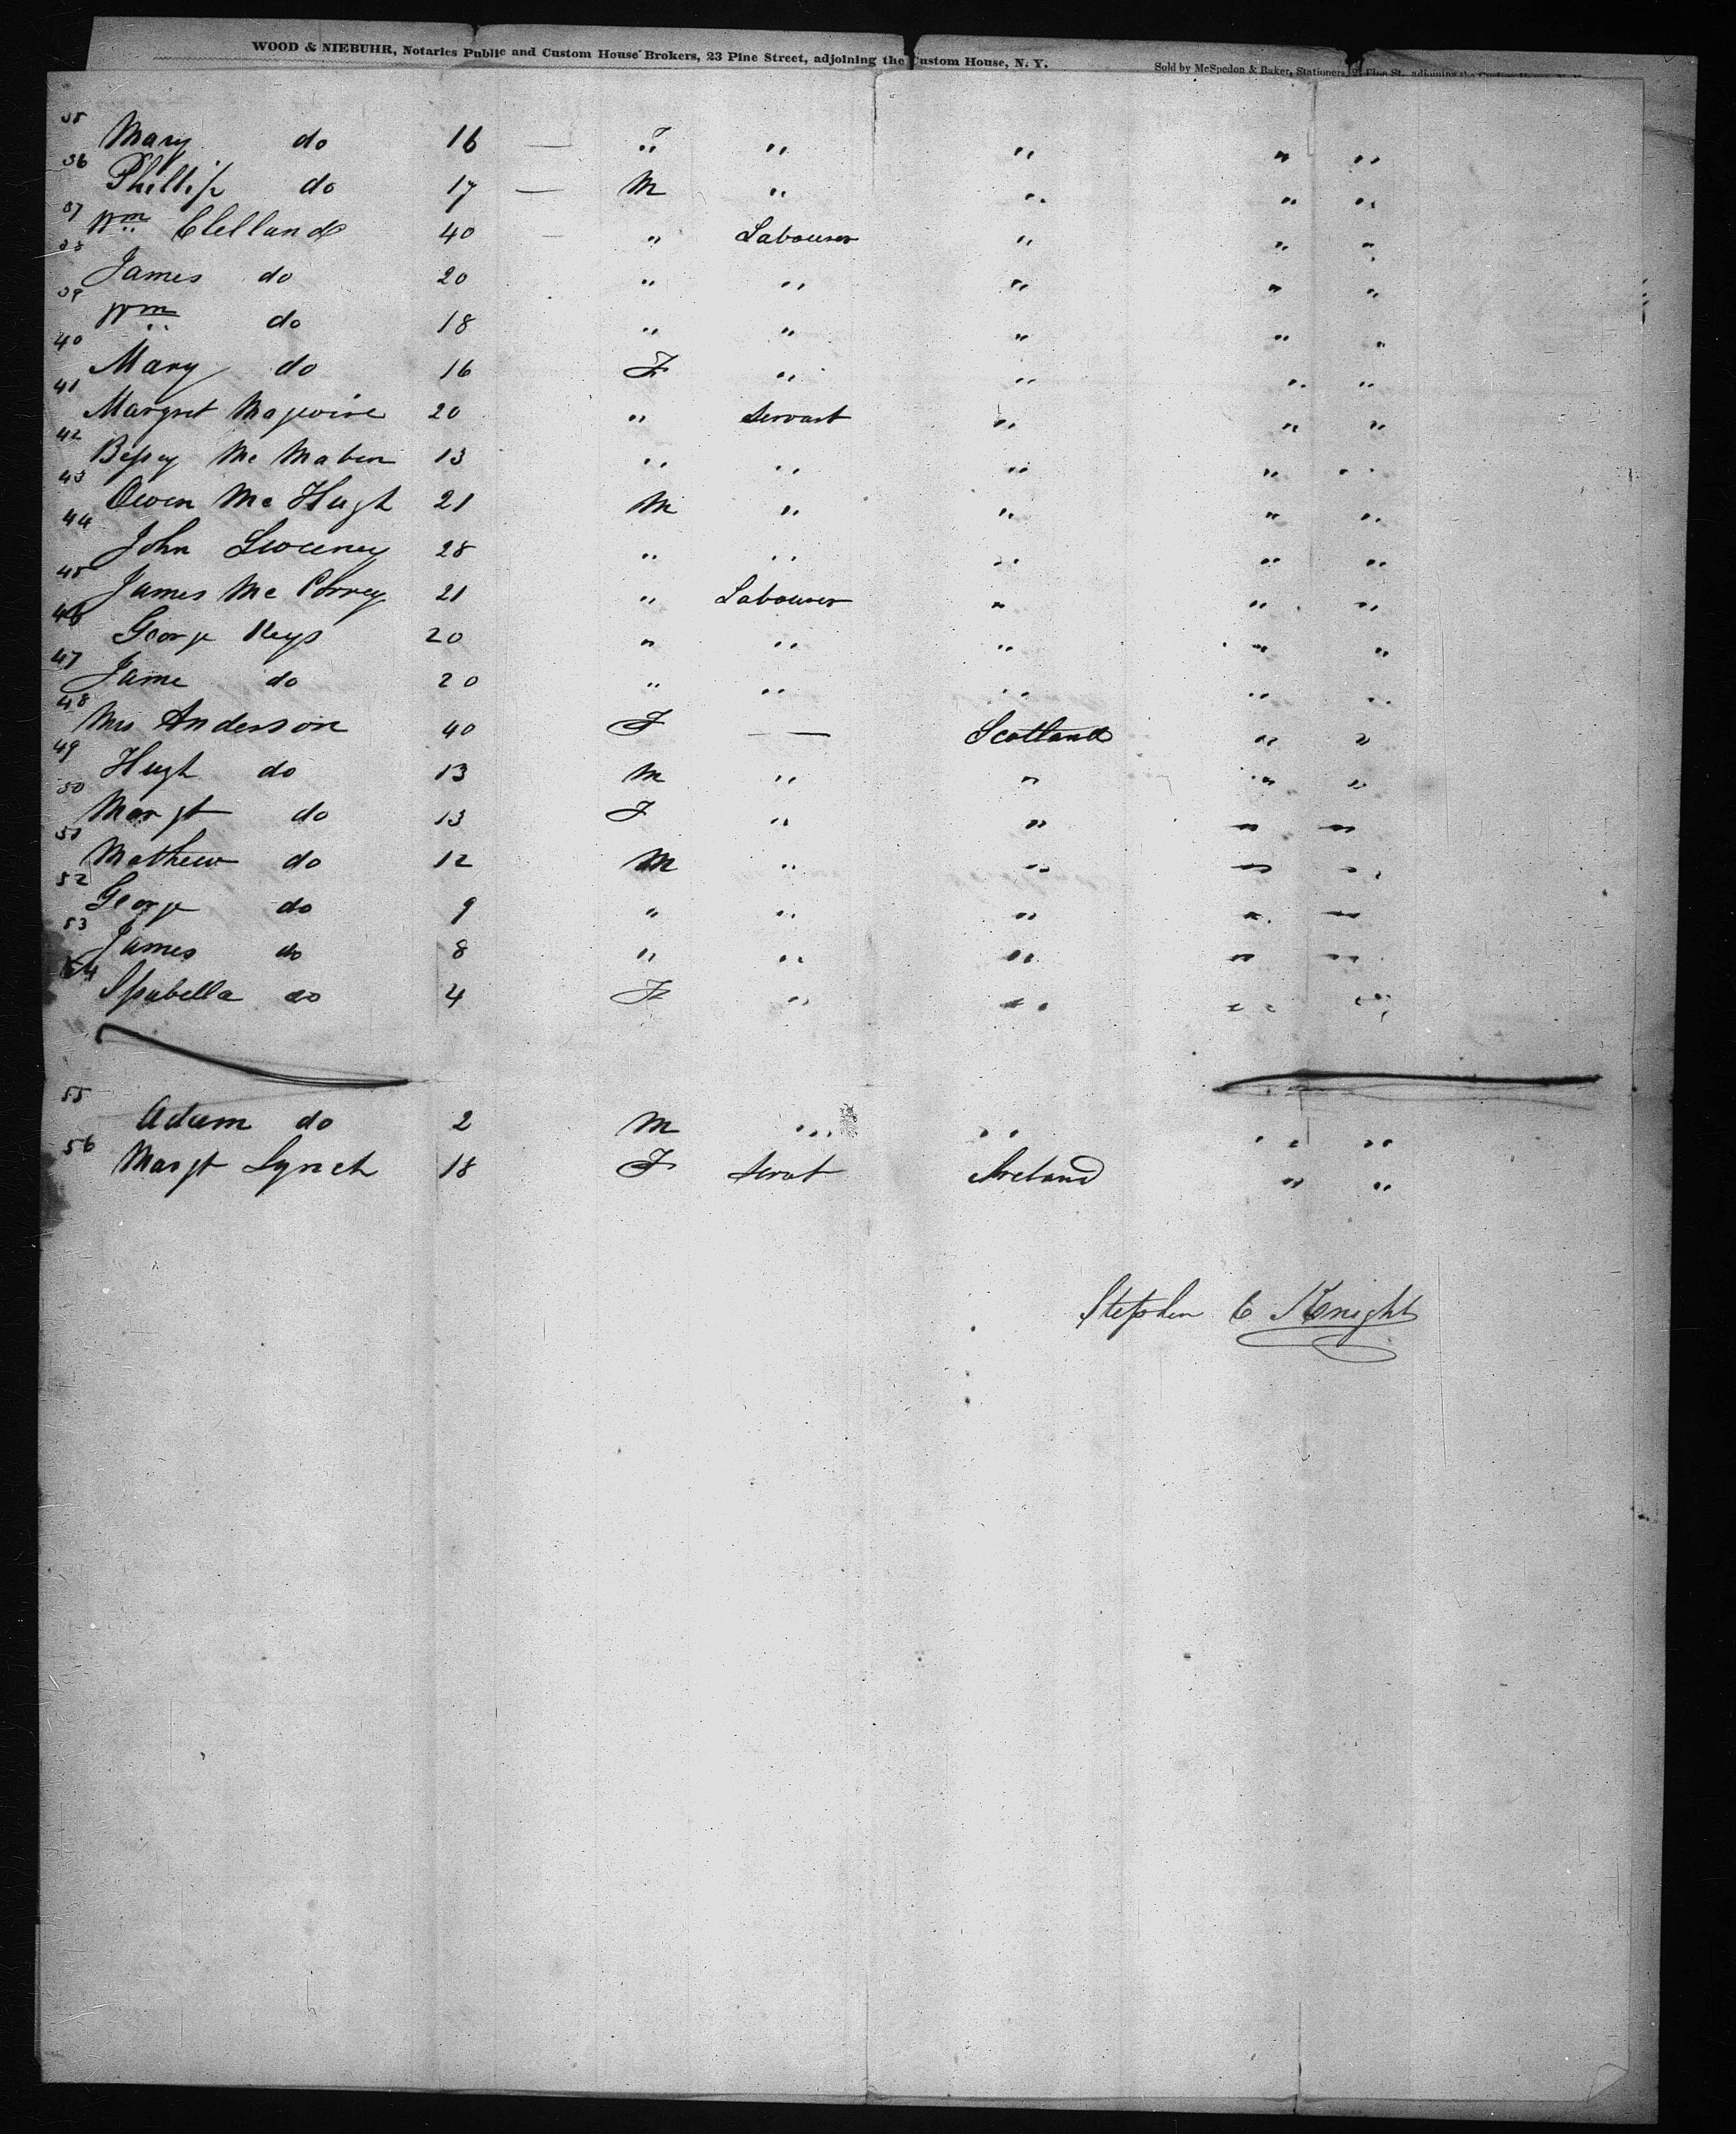 WOOD & NIEBUHR, Notaries Public and Custom House Brokers, 23 Pine Street, adjoining the Custom House, N. Y.
Sold by McSpedon & Baker, Stationers, Pine St., adjoining the Custom House, N. Y.
35 Mary do 16 — F „ „ „ „
36 Phillip do 17 — M „ „ „ „
37 Wm Clelland 40 — „ Labourer „ „ „
38 James do 20 „ „ „ „ „
39 Wm do 18 „ „ „ „ „
40 Mary do 16 F „ „ „ „
41 Margret Magwire 20 „ Servant „ „ „
42 Bessey Mc Maben 13 „ „ „ „ „
43 Owen Mc Hugh 21 M „ „ „ „
44 John Sweeney 28 „ „ „ „ „
45 James Mc 21 „ Labourer „ „ „
46 George Keys 20 „ „ „ „ „
47 Jame do 20 „ „ „ „ „
48 Mrs Anderson 40 F — Scotland „ „
49 Hugh do 13 M „ „ „ „
50 Margt do 13 F „ „ „ „
51 Mathew do 12 M „ „ „ „
52 George do 9 „ „ „ „ „
53 James do 8 „ „ „ „ „
54 Isabella do 4 F „ „ „ „
55 Adam do 2 M „ „ „ „
56 Margt Lynch 18 F Servt Ireland „ „
Stephen C Knight